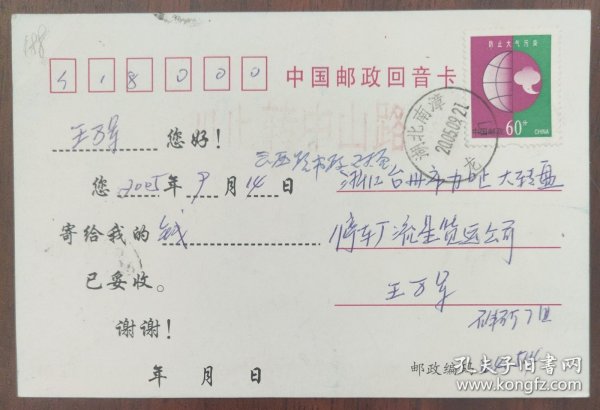 518000
中国邮政回音卡
防止大气污染
中国邮政
60分
CHINA
湖北南漳
2005.09.21
王万军 您好!
您 2005 年 9 月 14 日
寄给我的 钱
已妥收。
谢谢!
年 月 日
浙江台州市 大转盘
停车厂流星货运公司
王万军
邮政编码
孔夫子旧书网
www.kongfz.com